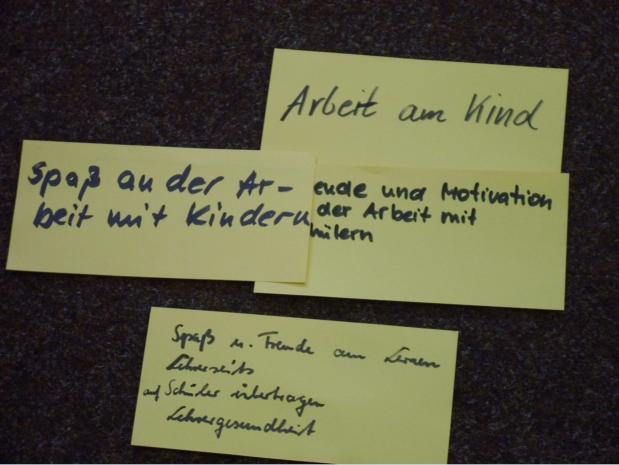 Arbeit am Kind
Spaß an der Ar-
beit mit Kindern
eude und Motivation
der Arbeit mit
hülern
Spaß u. Freude am Lernen
Lehrerseits
auf Schüler übertragen
Lehrergesundheit